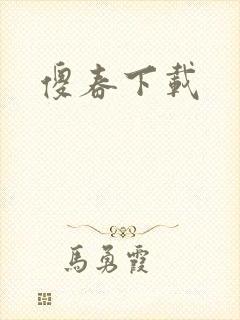 傻春下載
馬勇霞